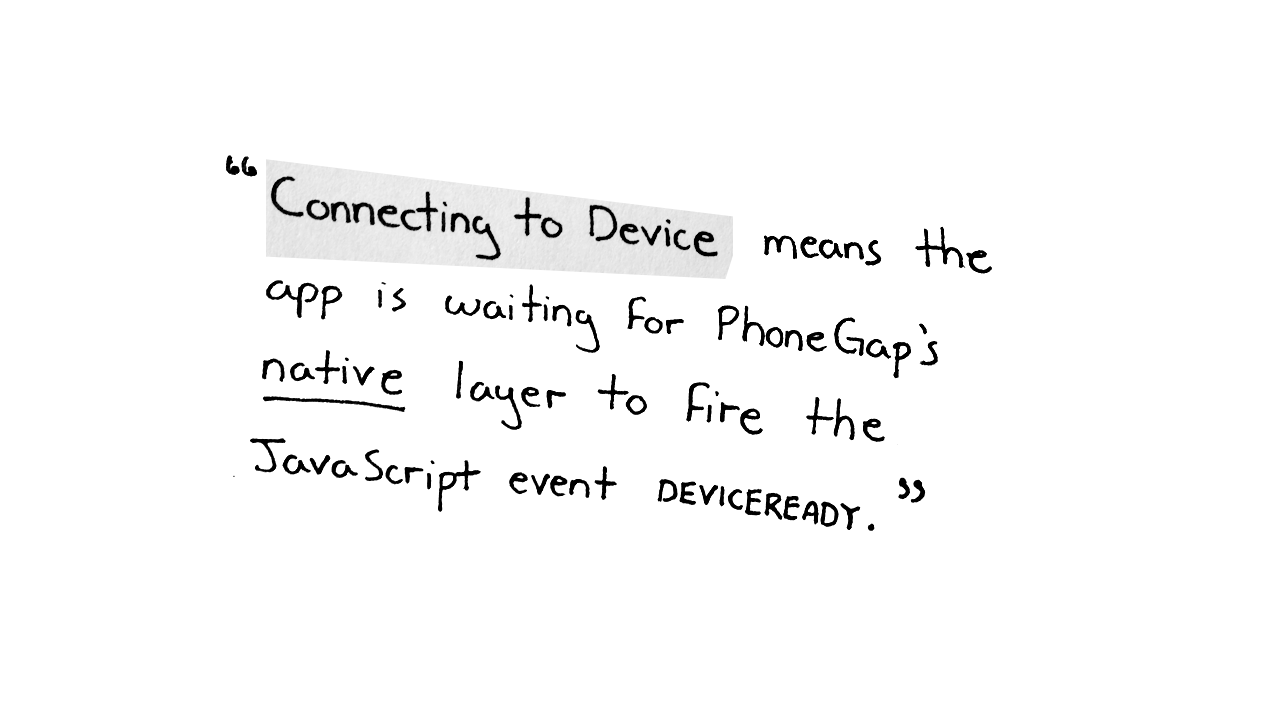 “Connecting to Device means the
app is waiting for PhoneGap's
native layer to fire the
JavaScript event DEVICEREADY.”